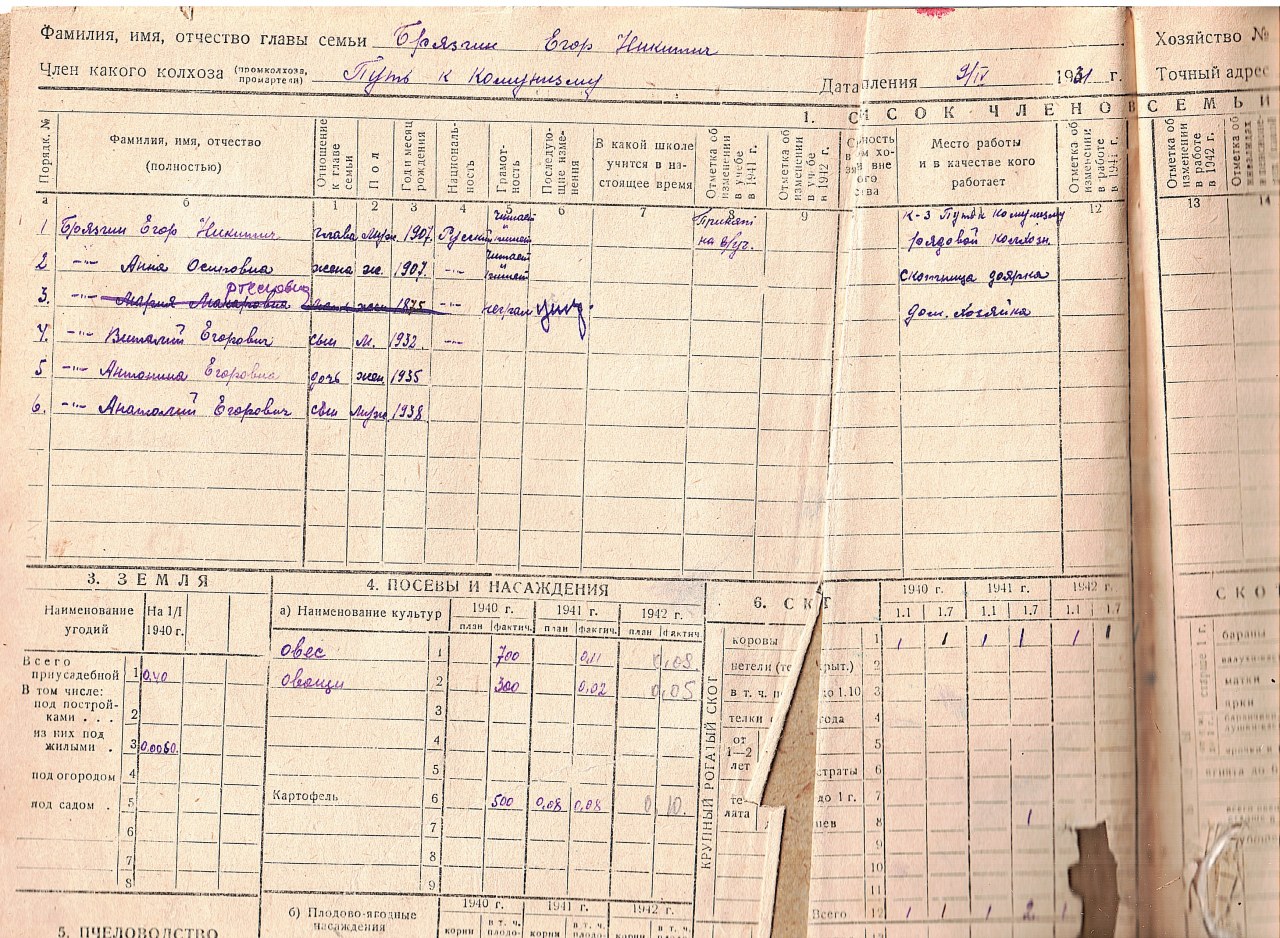 Фамилия, имя, отчество главы семьи Брязгин Егор Никитич
Хозяйство №
Член какого колхоза (промколхоза, промартели) Путь к Комунизму
Дата пления 9/IV 19 г.
Точный адрес
1. СПИСОК ЧЛЕНОВ СЕМЬИ
Порядк. №
Фамилия, имя, отчество (полностью)
Отношение к главе семьи
Пол
Год и месяц рождения
Националь-ность
Грамот-ность
Последую-щие изме-нения
В какой школе учится в на-стоящее время
Отметка об изменении в учебе в 1941 г.
Отметка об изменении в учебе в 1942 г.
Место работы и в качестве кого работает
Отметка об изменении в работе в 1941 г.
Отметка об изменении в работе в 1942 г.
Отметка об
а б 1 2 3 4 5 6 7 8 9 12 13 14
1 Брязгин Егор Никитич глава муж. 1907. Русский читает и пишет на в/уч. к-з Путь к комунизму рядовой колхозн.
2 -"- Анна Осиповна жена ж. 1907. -"- читает и пишет скотница доярка
3. -"- Мария Макаровна мать жен 1875 -"- неграм дом. хозяйка
4. -"- Виталий Егорович сын м. 1932. -"-
5 -"- Антонина Егоровна дочь жен 1935
6. -"- Анатолий Егорович сын муж 1938.
3. ЗЕМЛЯ
Наименование угодий
На 1/I 1940 г.
Всего приусадебной 1 0,40
В том числе:
под построй-ками . . . 2
из них под жилыми . 3 0.0060.
под огородом 4
под садом . 5
6
7
8
5. ПЧЕЛОВОДСТВО
4. ПОСЕВЫ И НАСАЖДЕНИЯ
а) Наименование культур
1940 г. 1941 г. 1942 г.
план фактич. план фактич. план фактич
овес 1 700 0,11 0,08.
овощи 2 300 0,02 0,05
3
4
5
Картофель 6 500 0,08 0,08 0 10.
7
8
9
б) Плодово-ягодные насаждения
1940 г. 1941 г. 1942 г.
корни в т. ч. плодо- корни в т. ч. плодо- корни в т. ч. плодо-
6. СКОТ
СКО
1940 г. 1941 г. 1942 г.
1.1 1.7 1.1 1.7 1.1 1.7
КРУПНЫЙ РОГАТЫЙ СКОТ
коровы 1 1 1 1 1 1 1
нетели (те крыт.) 2
в т. ч. п до 1.10 3
телки года 4
от 1—2 лет 5
страты 6
те-лята до 1 г. 7
8 1
9
10
11
Всего 12 1 1 1 2 1
старше 1 г.
бараны
матки
ярки